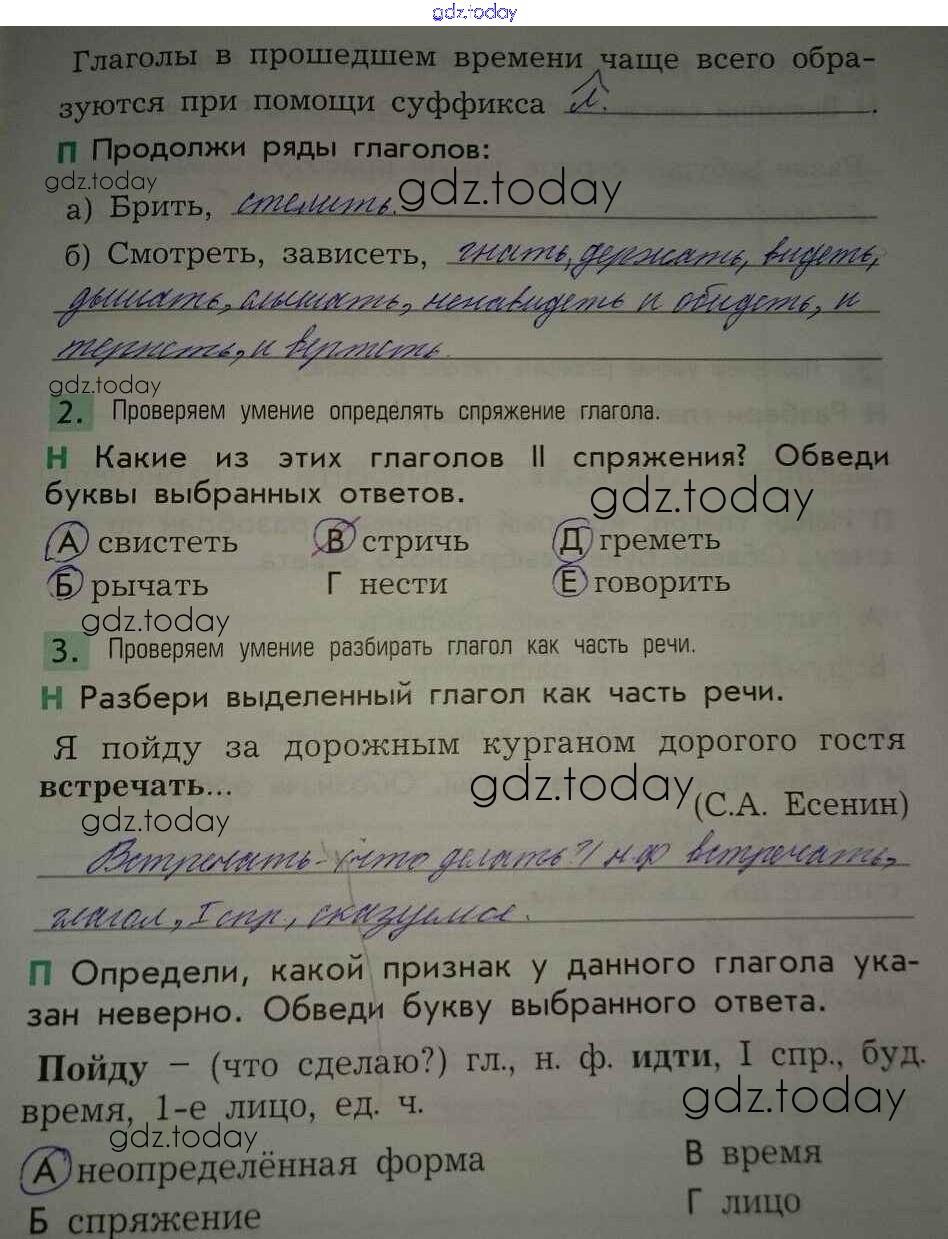 gdz.today
Глаголы в прошедшем времени чаще всего обра-
зуются при помощи суффикса л.
П Продолжи ряды глаголов:
gdz.today gdz.today
а) Брить, стелить.
б) Смотреть, зависеть, гнать, держать, видеть,
дышать, слышать, ненавидеть и обидеть, и
терпеть, и вертеть.
gdz.today
2. Проверяем умение определять спряжение глагола.
Н Какие из этих глаголов II спряжения? Обведи
буквы выбранных ответов. gdz.today
А свистеть В стричь Д греметь
Б рычать Г нести Е говорить
gdz.today
3. Проверяем умение разбирать глагол как часть речи.
Н Разбери выделенный глагол как часть речи.
Я пойду за дорожным курганом дорогого гостя
встречать... gdz.today
(С.А. Есенин)
gdz.today
Встречать - (что делать?) н.ф встречать,
глагол, I спр, сказуемое.
П Определи, какой признак у данного глагола ука-
зан неверно. Обведи букву выбранного ответа.
Пойду – (что сделаю?) гл., н. ф. идти, I спр., буд.
время, 1-е лицо, ед. ч. gdz.today
gdz.today
А неопределённая форма В время
Б спряжение Г лицо